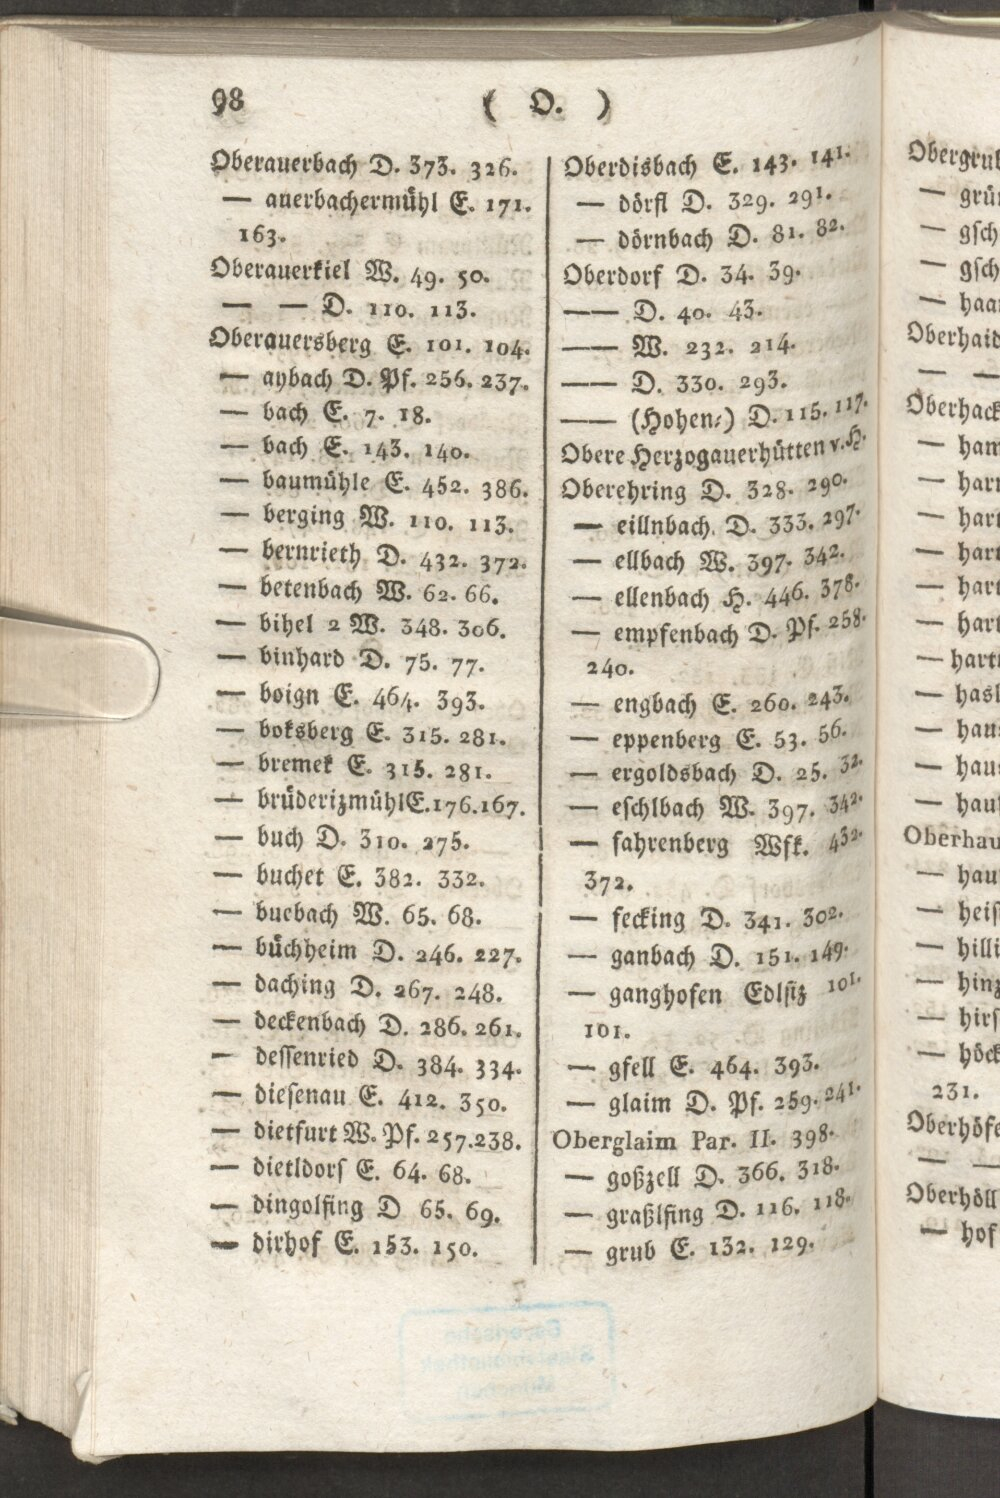 98
( O. )
Oberauerbach D. 373. 326.
— auerbachermühl E. 171.
163.
Oberauerkiel W. 49. 50.
— — D. 110. 113.
Oberauersberg E. 101. 104.
— aybach D. Pf. 256. 237.
— bach E. 7. 18.
— bach E. 143. 140.
— baumühle E. 452. 386.
— berging W. 110. 113.
— bernrieth D. 432. 372.
— betenbach W. 62. 66.
— bihel 2 W. 348. 306.
— binhard D. 75. 77.
— boign E. 464. 393.
— boksberg E. 315. 281.
— bremek E. 315. 281.
— brüderizmühl E. 176. 167.
— buch D. 310. 275.
— buchet E. 382. 332.
— buebach W. 65. 68.
— büchheim D. 246. 227.
— daching D. 267. 248.
— deckenbach D. 286. 261.
— dessenried D. 384. 334.
— diesenau E. 412. 350.
— dietfurt W. Pf. 257. 238.
— dietldorf E. 64. 68.
— dingolfing D 65. 69.
— dirhof E. 153. 150.
Oberdisbach E. 143. 141.
— dörfl D. 329. 291.
— dörnbach D. 81. 82.
Oberdorf D. 34. 39.
—— D. 40. 43.
—— W. 232. 214.
—— D. 330. 293.
—— (Hohen-) D. 115. 117.
Obere Herzogauerhütten v. H.
Oberehring D. 328. 290.
— eillnbach. D. 333. 297.
— ellbach W. 397. 342.
— ellenbach H. 446. 378.
— empfenbach D. Pf. 258.
240.
— engbach E. 260. 243.
— eppenberg E. 53. 56.
— ergoldsbach D. 25. 32.
— eschlbach W. 397. 342.
— fahrenberg Wfk. 432.
372.
— fecking D. 341. 302.
— ganbach D. 151. 149.
— ganghofen Edlsiz 101.
101.
— gfell E. 464. 393.
— glaim D. Pf. 259. 241.
Oberglaim Par. II. 398.
— goßzell D. 366. 318.
— graßlfing D. 116. 118.
— grub E. 132. 129.
Obergru
— grü
— gsch
— gsch
— haa
Oberhaid
— —
Oberhack
— ham
— har
— hart
— hart
— hart
— hart
— hart
— hasl
— hau
— hau
— hau
Oberhau
— hau
— heis
— hilli
— hinz
— hirs
— höck
231.
Oberhöf
— —
Oberhöll
— hof